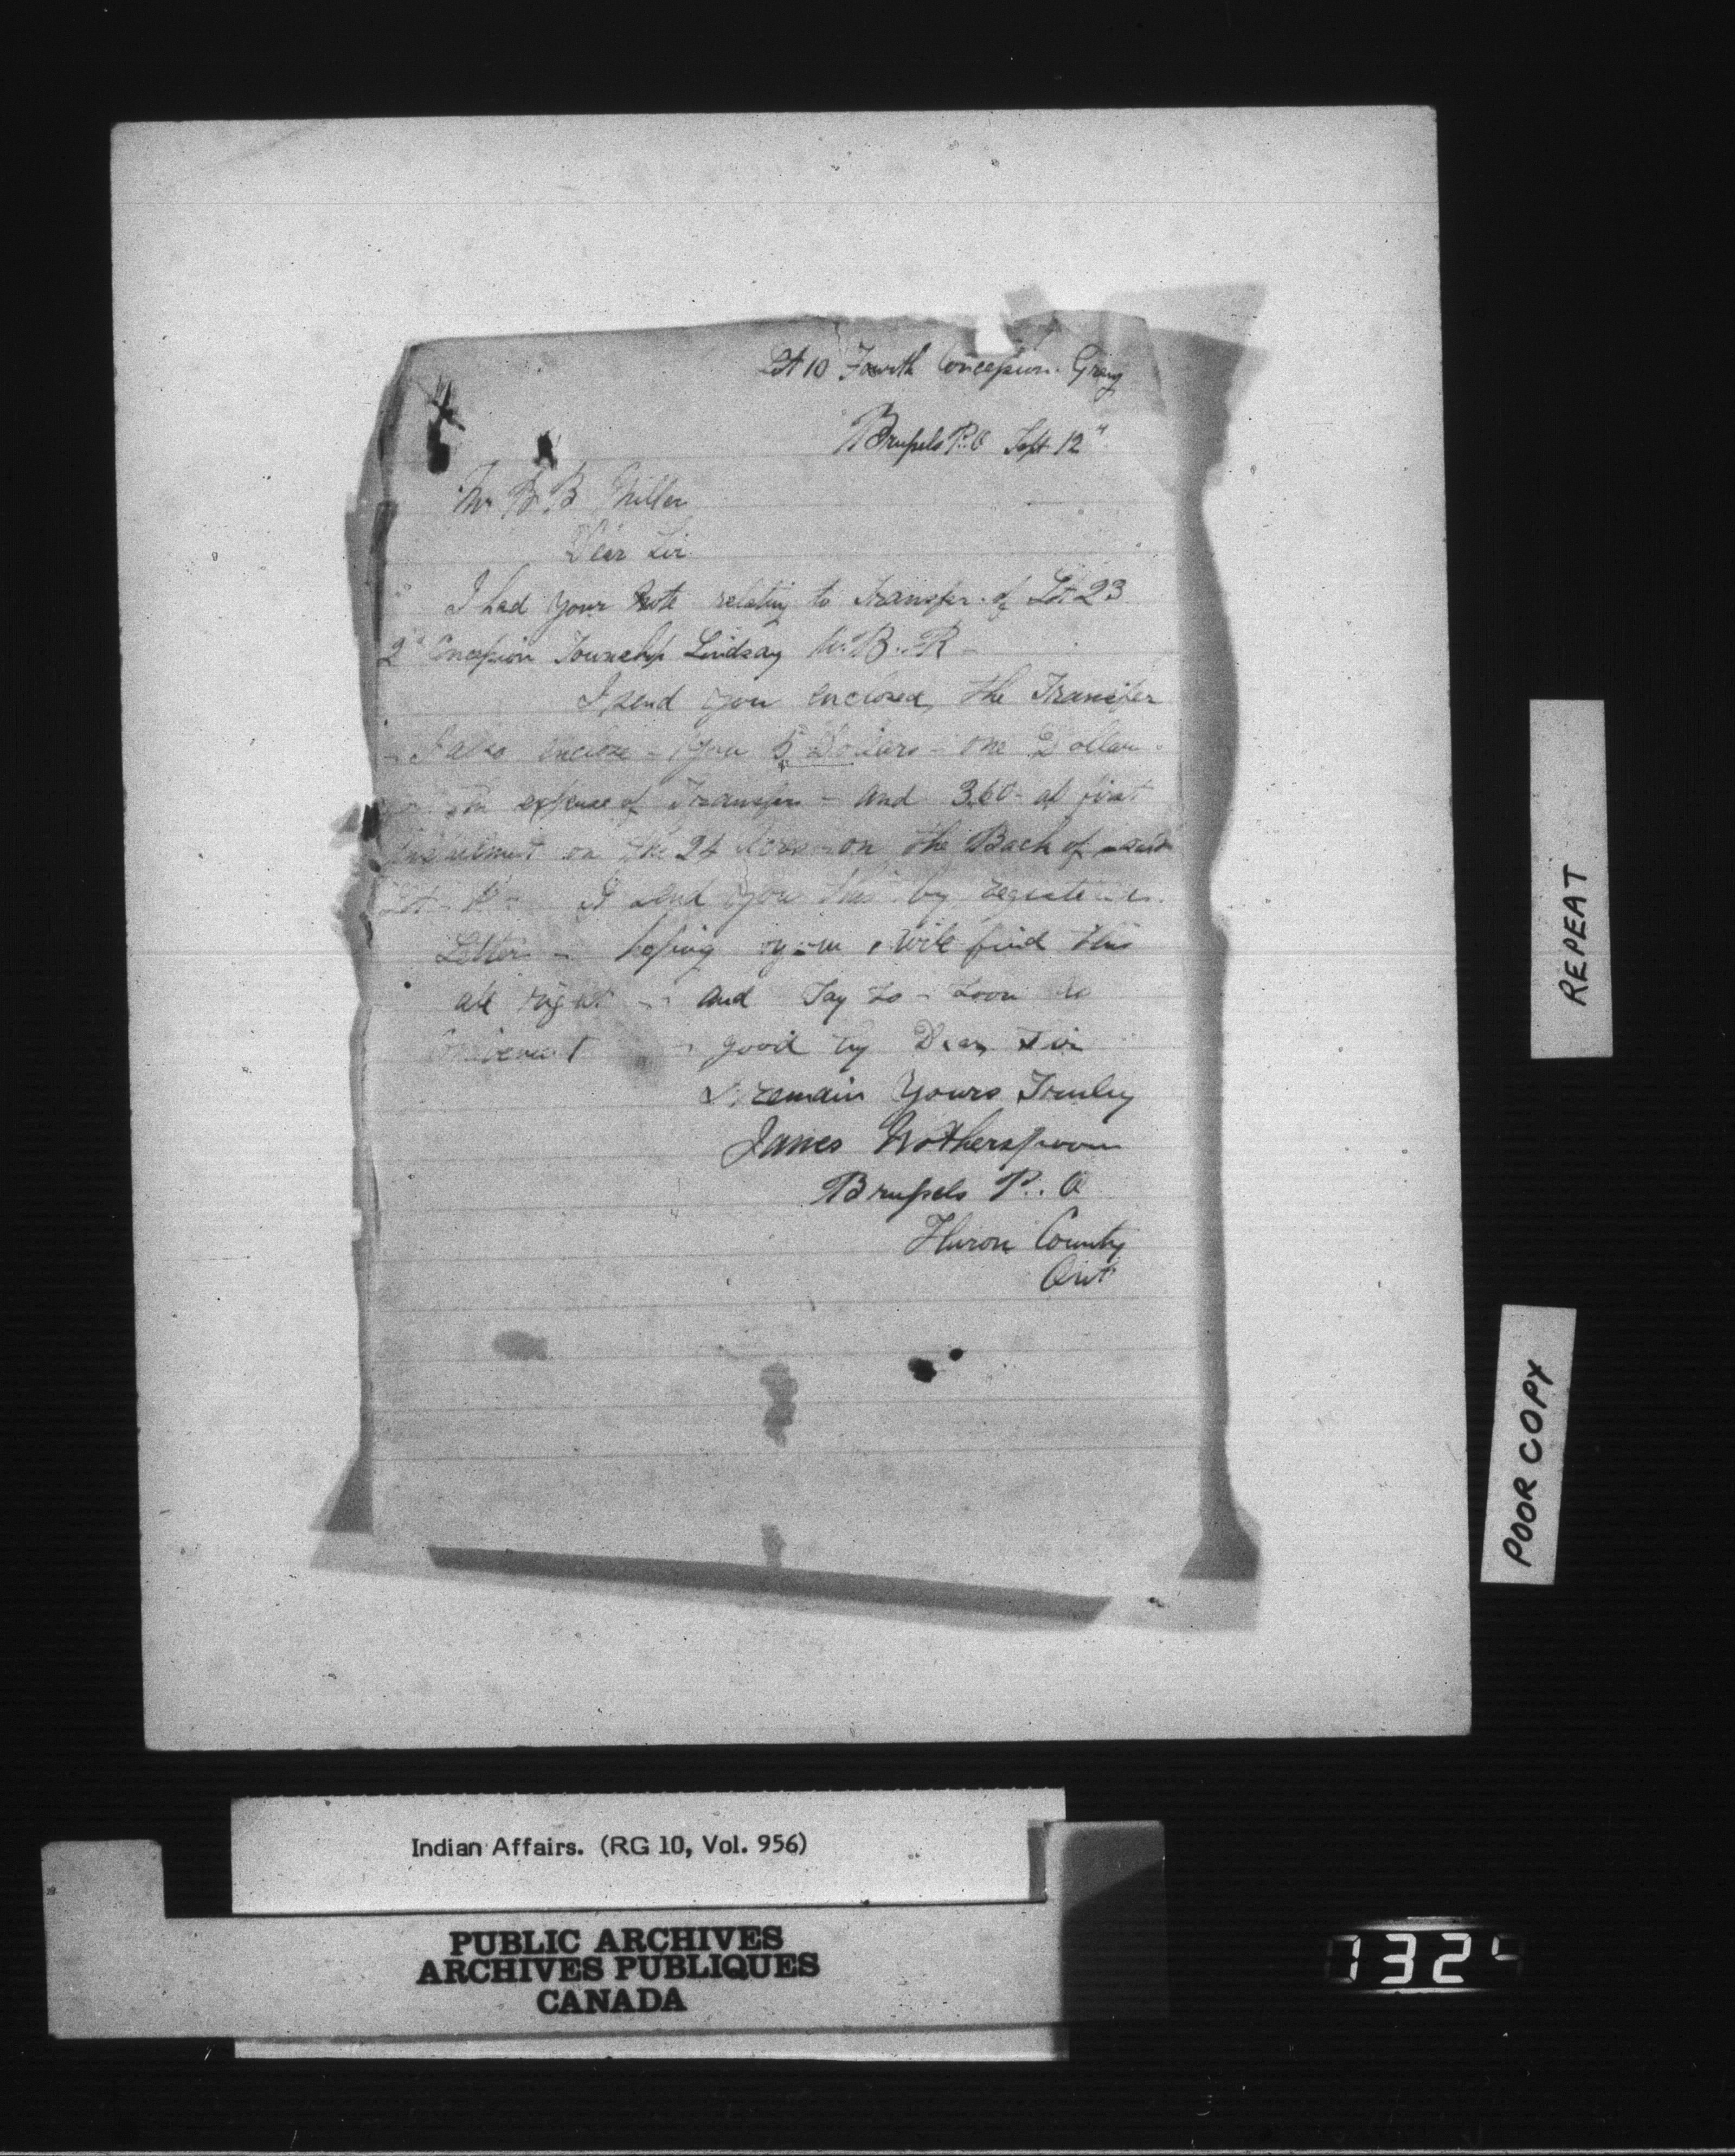 Lot 10 Fourth Concession Grey
Brussels P.O Sept 12"
Mr B. B Miller
Dear Sir
I had your Note relating to Transfer of Lot 23
2d Concession Township Lindsay W.B.R -
I send you enclosed the Transfer
- I also enclose - you 5 Dollars - one Dollar
the expense of Transfer - and 3.60 - as first
instalment on the 24 Acres on the Back of said
Lot - I send you this by registered
Letter - hoping you will find this
all right - and Say So - Soon as
Convenient - good by Dear Sir
I remain Yours Truly
James Wotherspoon
Brussels P.. O
Huron County
Ont
REPEAT
POOR COPY
Indian Affairs. (RG 10, Vol. 956)
PUBLIC ARCHIVES
ARCHIVES PUBLIQUES
CANADA
1324